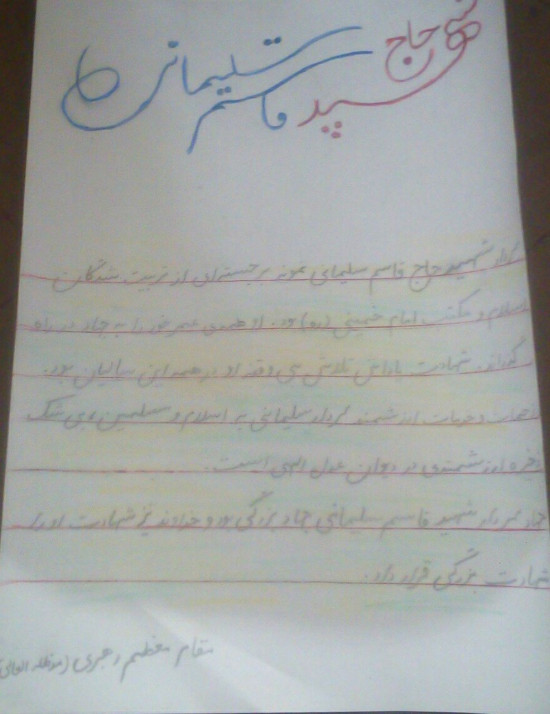 شهید حاج
قاسم سلیمانی
سردار شهید حاج قاسم سلیمانی نمونه برجسته‌ای از تربیت شدگان
اسلام و مکتب امام خمینی (ره) بود. او همه‌ی عمر خود را به جهاد در راه
گذراند. شهادت پاداش تلاش بی وقفه او در همه این سالیان بود.
زحمات و خدمات ارزشمند سردار سلیمانی به اسلام و مسلمین بی شک
ذخیره ارزشمندی در دیوان عدل الهی است.
جهاد سردار شهید قاسم سلیمانی جهاد بزرگی بود و خداوند نیز شهادت او را
شهادت بزرگی قرار داد.
مقام معظم رهبری (مدظله العالی)